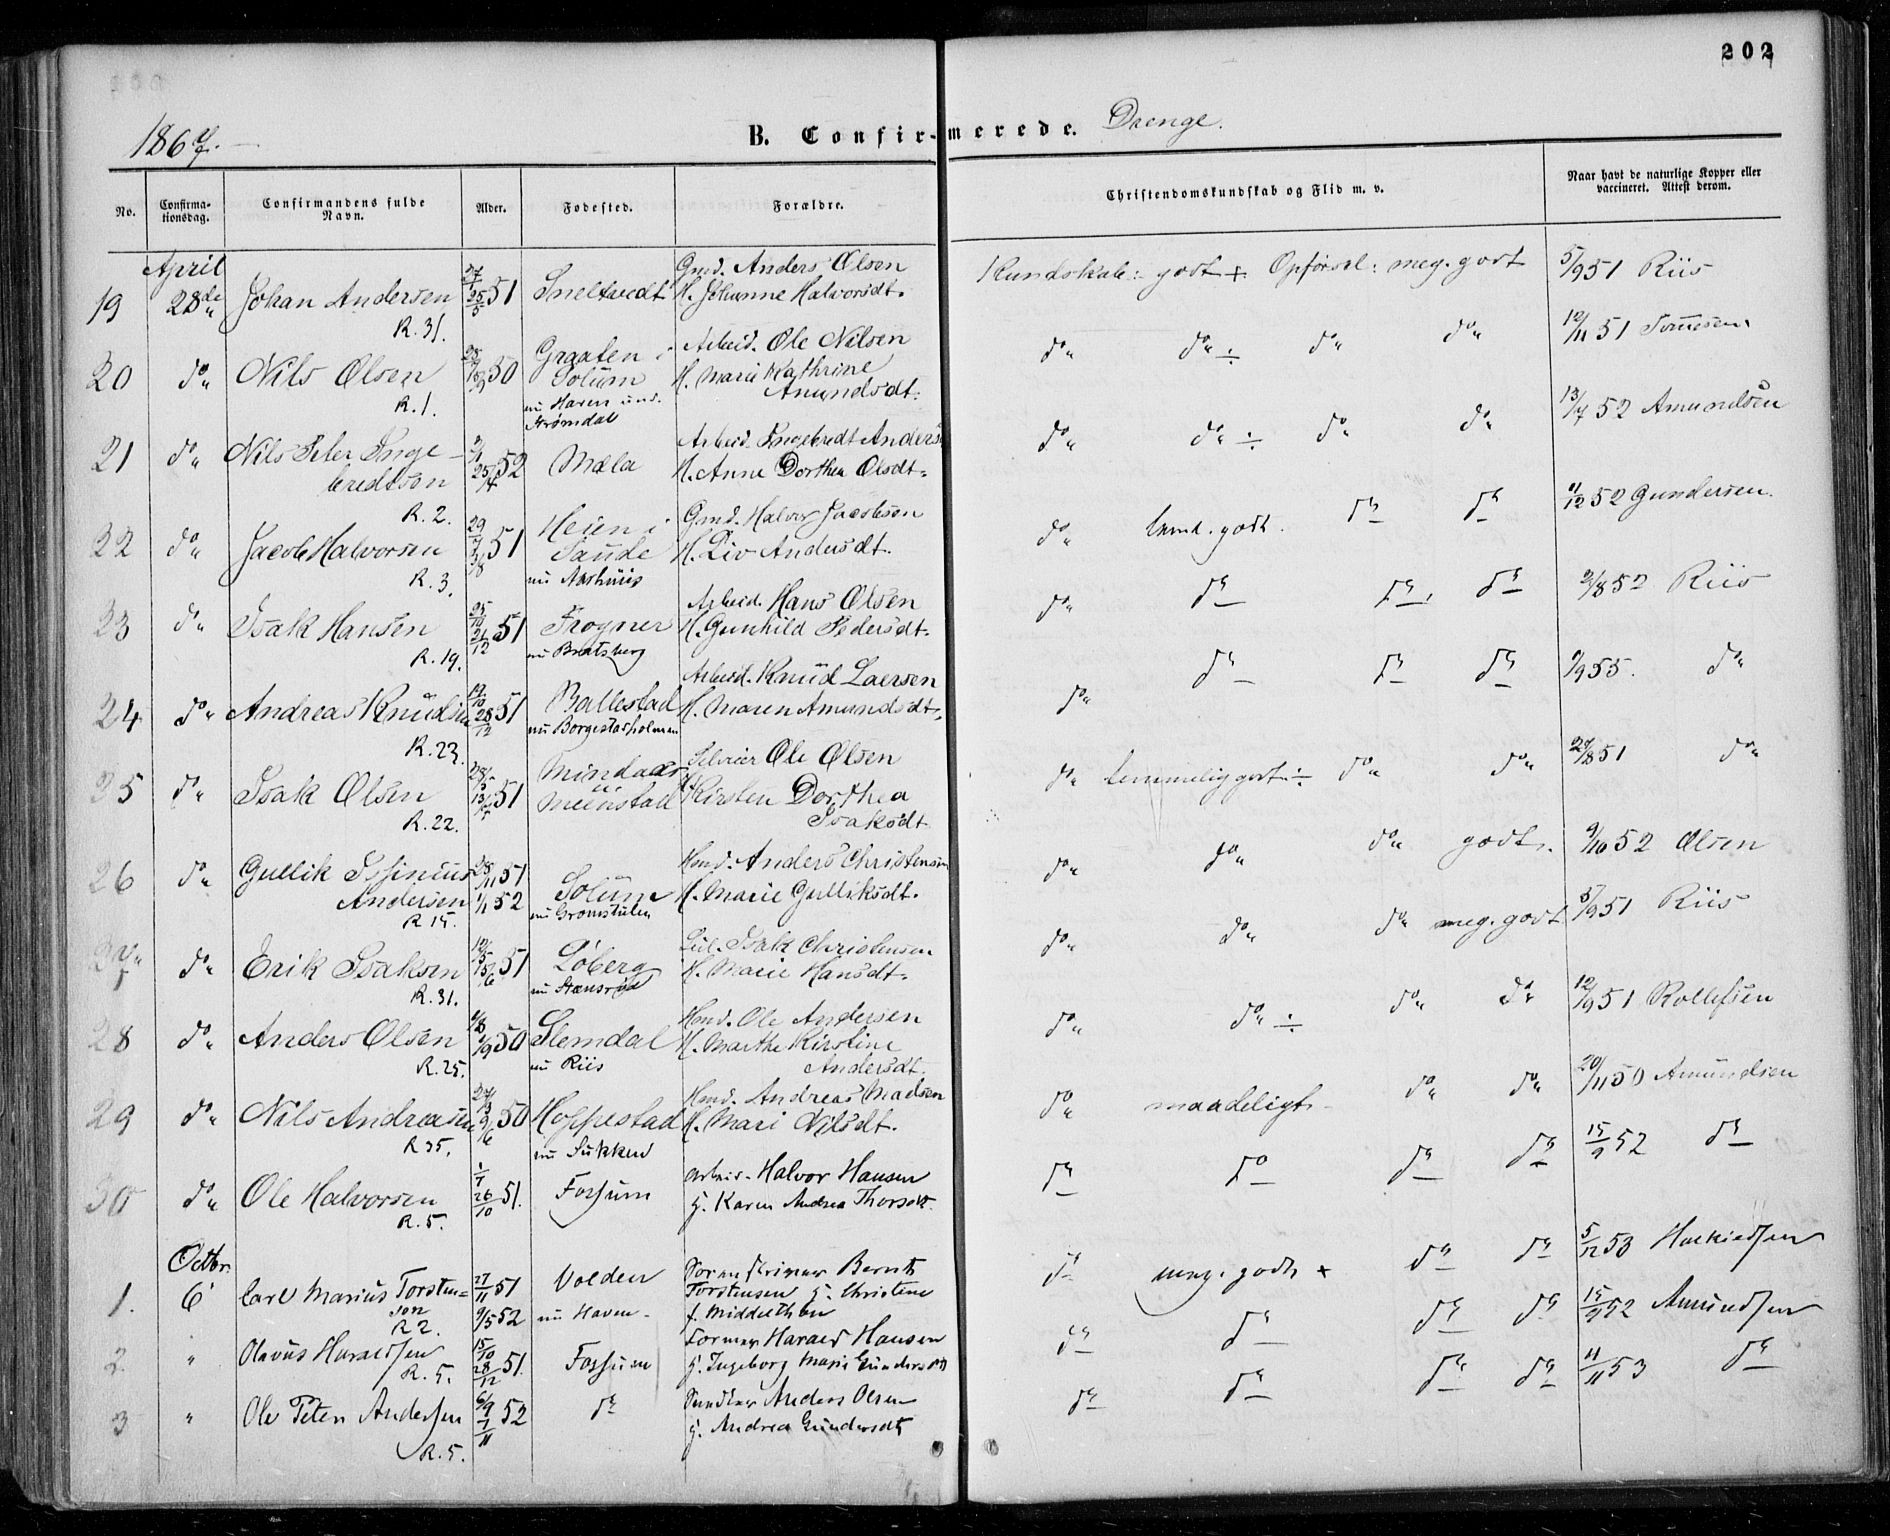 202
1867.
B. Confirmerede. Drenge.
No.
Confirma-
tionsdag.
Confirmandens fulde
Navn.
Alder.
Fødested.
Forældre.
Christendomskundskab og Flid m. v.
Naar havt de naturlige Kopper eller
vaccineret. Attest derom.
April
19 28de Johan Andersen 51 Sneltvedt Gmd. Anders Olsen
H. Johanne Halvorsdt. Kundskab: godt + Opførsel: meg. godt 5/9 51 Riis
R. 31.
20 do Nils Olsen 50 Graaten i Arbeid. Ole Nilsen
Solum H. Marie Kathrine
nu Haven und. Amundsdt.
Strømdal
R. 1.
do do ÷ do do 12/11 51
21 do Nils Peter Inge-
bredtson 52 Mæla Arbeid. Ingebredt Anders
H. Anne Dorthea Olsdt.
R. 2.
do do ÷ do do 13/7 52 Amundsen
22 do Jacob Halvorsen 51 Heien i Gmd. Halvor Jacobsen
Saude H. Liv Andersdt.
nu Aarhuus
R. 3.
do temt. godt. do do 52 Gundersen.
23 do Isak Hansen 51 Frogner Arbeid. Hans Olsen
nu Bratsberg H. Gunhild Pedersdt.
R. 19.
do do do do 2/8 52 Riis
24 do Andreas Knudsen 28/12 51 Ballestad Arbeid. Knud Larsen
nu Borgestadholmen H. Maren Amundsdt.
R. 23.
do do do do 55. do
25 do Isak Olsen 51 Ole Olsen
Kirsten Dorthea
Isaksdt
R. 22.
do temmelig godt ÷ do do 51 do
26 do Gullik Issinius 28/11 51
Andersen 1/1 52 Solum Hmd. Anders Christensen
nu Gromstulen H. Marie Gulliksdt.
R 15.
do do do godt. 9/10 52 Olsen
do Erik Isaksen 51 Løberg Isak Christensen
nu Stensrød H. Marie Hansdt.
R. 31.
do do do meg. godt 5/9 51 Riis
28 do Anders Olsen 50 Slemdal Hmd. Ole Andersen
nu Riis H. Marthe Kirstine
Andersdt.
R. 25.
do do ÷ do do 12/9 51 Rollefsen
29 do Nils Andreasen 50 Hoppestad Hmd. Andreas Madsen
nu Sukken H. Mari Nilsdt.
R 35.
do maadeligt do do 20/11 50 Amundsen
30 do Ole Halvorsen 26/10 51. Fossum Arbeid. Halvor Hansen
H. Karen Andrea Thorsdt.
R. 5.
do do do do 15/9 52 do
Octbr.
1. 6 Carl Marius Torsten-
son 27/11 51
9/5 52 Volden
nu Haven Bernt
Torstensen H. Christine
f. Middelthon
R 2.
do meg. godt + do do 5/12 53
2. " Olavus Haraldsen 15/10
28/12 51. Fossum Former Harald Hansen
H. Ingeborg Marie Gundersdt
R. 5.
do do do do 15/9 52 Amundsen
3 " Ole Peter Andersen 52 do Anders Olsen
H. Andrea Gundersdt
R. 5.
do do do do 11/11 53 do